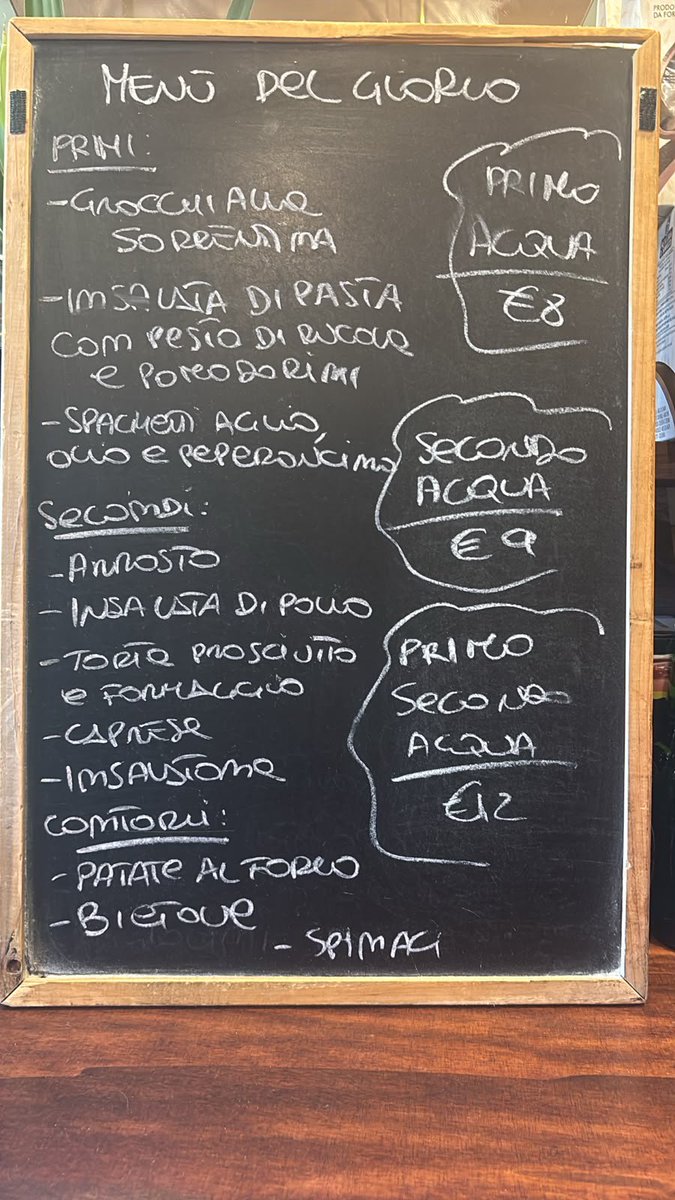 MENÙ DEL GIORNO
PRIMI:
- GNOCCHI ALLA
SORRENTINA
- INSALATA DI PASTA
CON PESTO DI RUCOLA
e POMODORINI
- SPAGHETTI AGLIO,
OLIO e PEPERONCINO
SECONDI:
- ARROSTO
- INSALATA DI POLLO
- TORTA PROSCIUTTO
e FORMAGGIO
- CAPRESE
- INSALATONA
CONTORNI:
- PATATE AL FORNO
- BIETOLE
- SPINACI
PRIMO
ACQUA
€8
SECONDO
ACQUA
€9
PRIMO
SECONDO
ACQUA
€12
PRODO
DA FOR